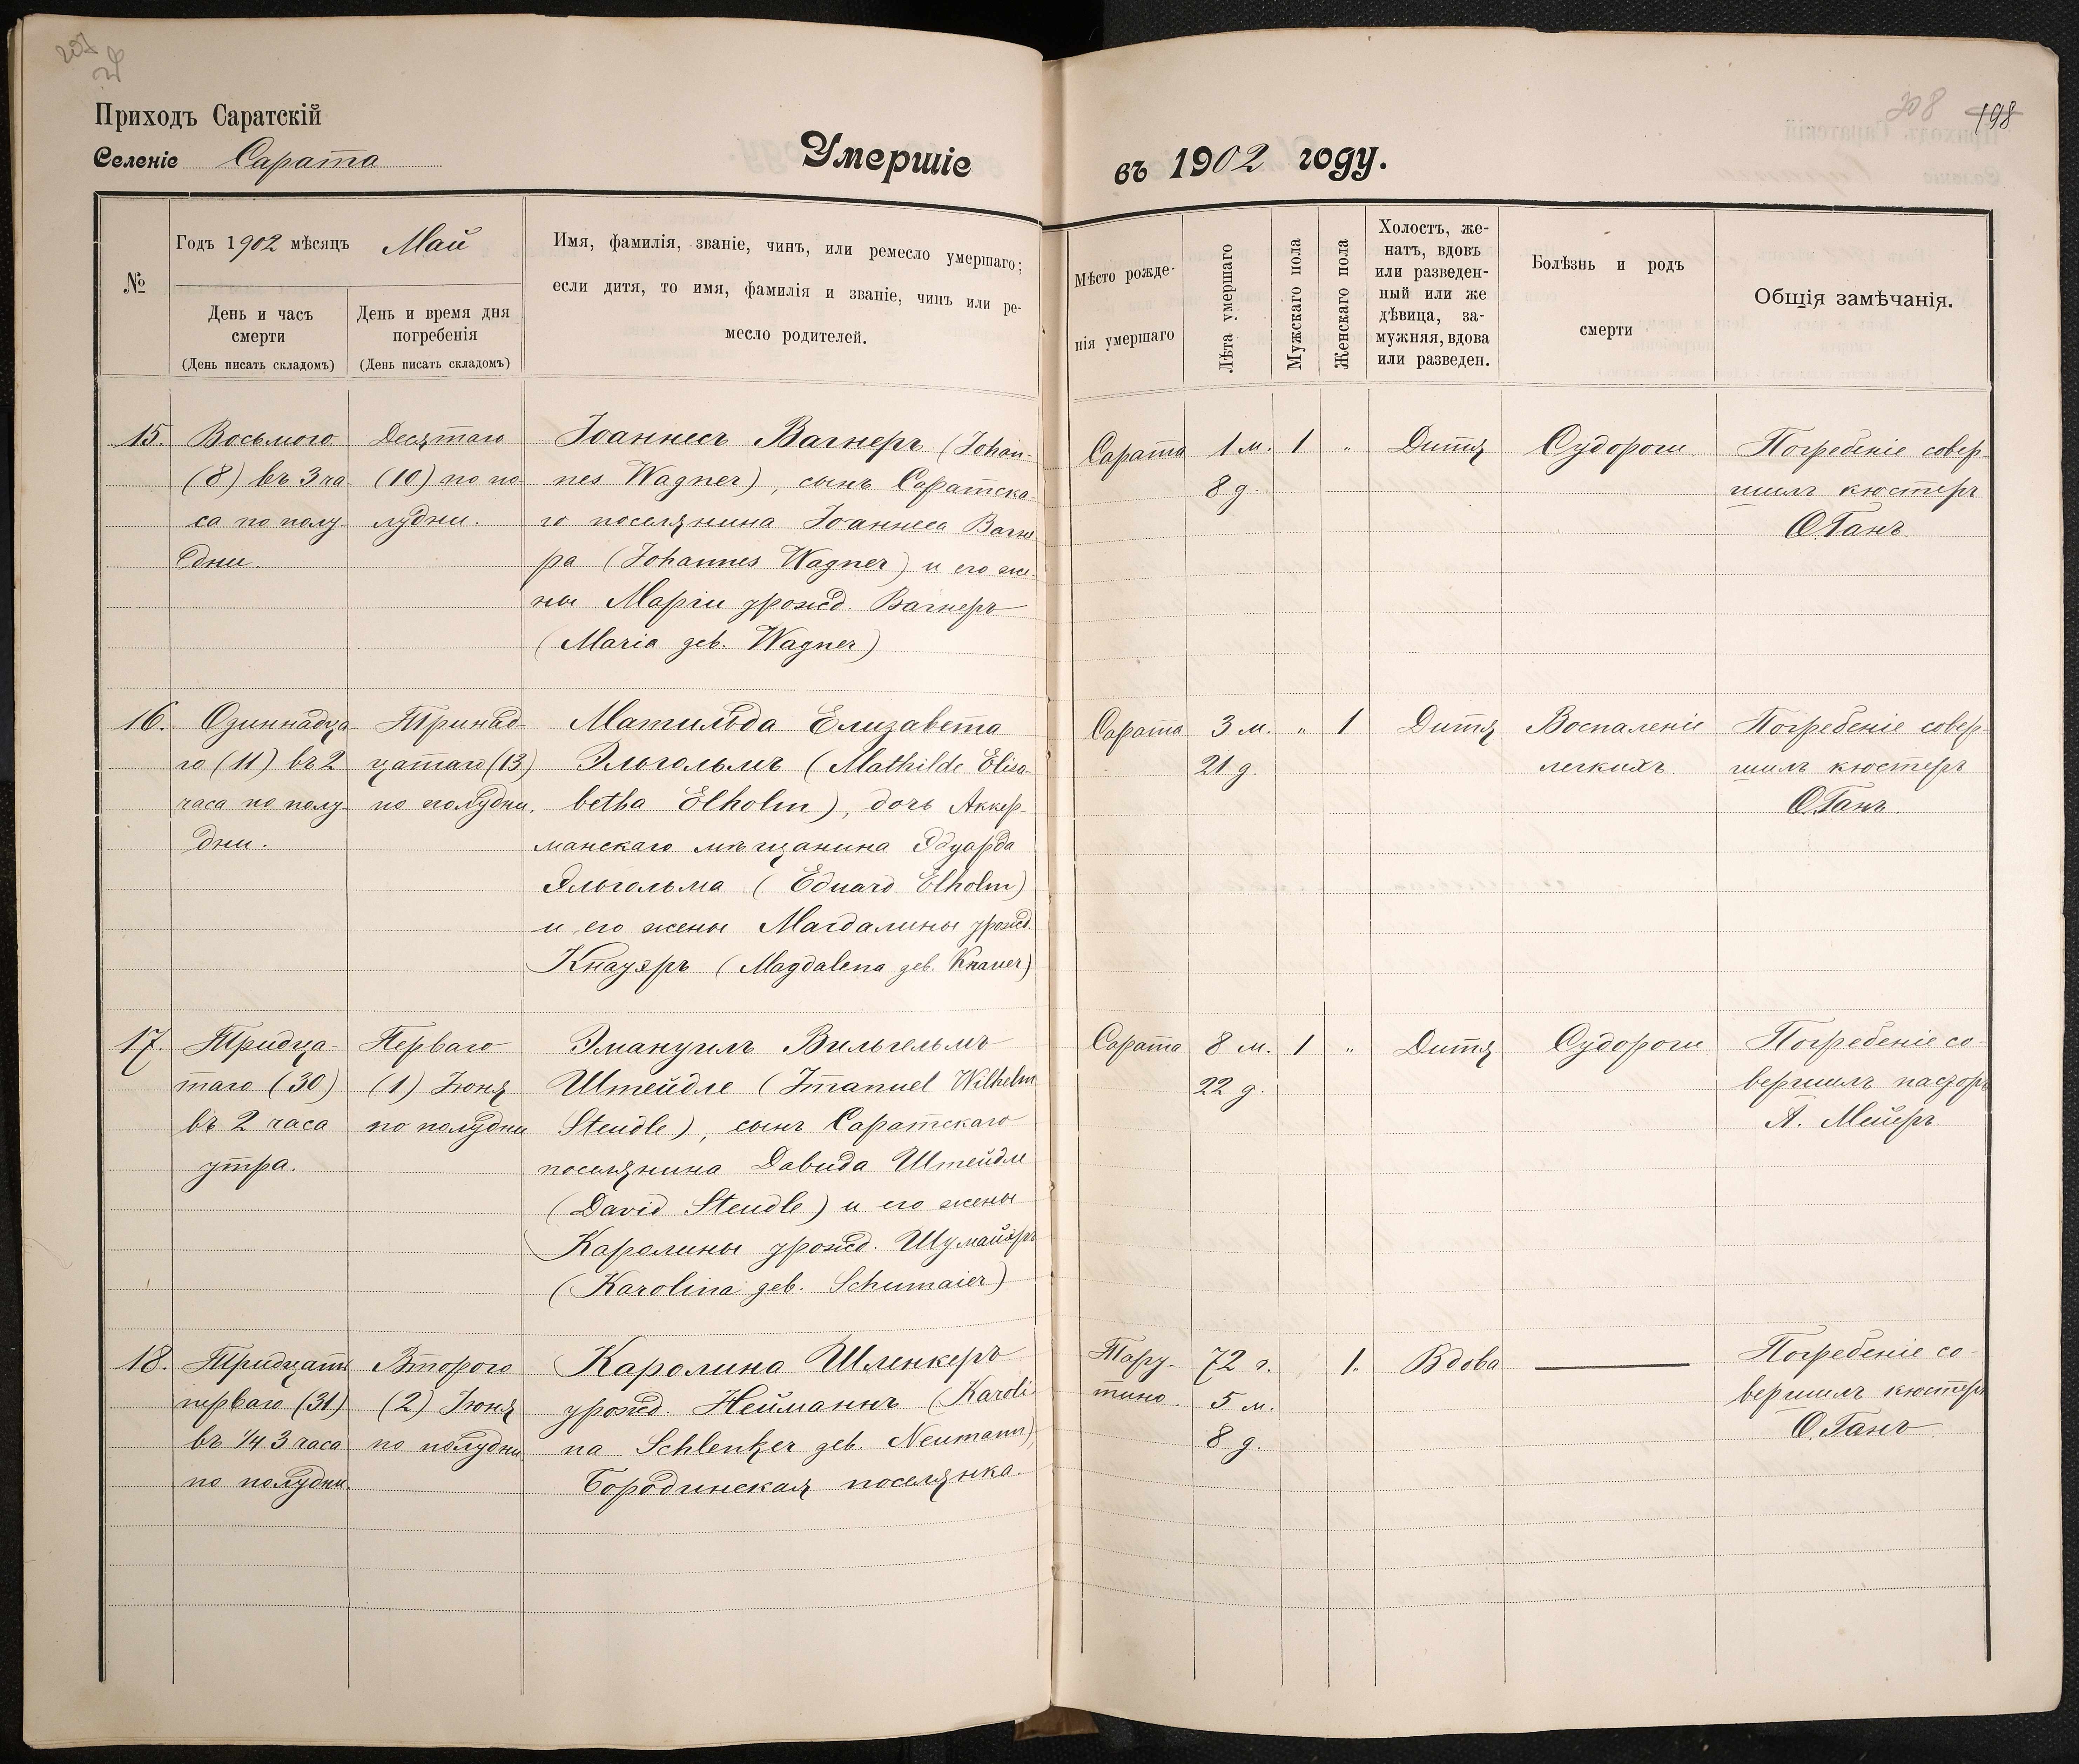 207
Приходъ Саратскій
Селеніе Сарата
Умершіе
№
Годъ 1902 мѣсяцъ Май
День и часъ
смерти
(День писать складомъ)
День и время дня
погребенія
(День писать складомъ)
Имя, фамилія, званіе, чинъ, или ремесло умершаго;
если дитя, то имя, фамилія и званіе, чинъ или ре-
месло родителей.
15.
Восьмого
(8) въ 3 ча
са по полу-
дни.
Десятаго
(10) по по-
лудни.
Іоаннесъ Вагнеръ (Johan-
nes Wagner), сынъ Саратска-
го поселянина Іоаннеса Вагне
ра (Johannes Wagner) и его же-
ны Маріи урожд. Вагнеръ
(Maria geb. Wagner)
16.
Одиннадца-
го (11) въ 2
часа по полу-
дни.
Тринад-
цатаго (13)
по полудни.
Матильда Елизавета
Эльгольмъ (Mathilde Elisa-
betha Elholm), дочь Аккер-
манскаго мѣщанина Эдуарда
Эльгольма (Eduard Elholm)
и его жены Магдалины урожд.
Кнауэръ (Magdalena geb. Knauer)
17.
Тридца-
таго (30)
въ 2 часа
утра.
Перваго
(1) Іюня
по полудни
Эмануилъ Вильгельмъ
Штейдле (Imanuel Wilhelm
Steudle), сынъ Саратскаго
поселянина Давида Штейдле
(David Steudle) и его жены
Каролины урожд. Шумайеръ
(Karolina geb. Schumaier)
18.
Тридцать
перваго (31)
въ 1/4 3 часа
по полудни.
Второго
(2) Іюня
по полудни.
Каролина Шленкеръ
урожд. Нейманнъ (Karoli-
na Schlenker geb. Neumann),
Бородинская поселянка.
308 198
въ 1902 году.
Мѣсто рожде-
нія умершаго
Лѣта умершаго
Мужскаго пола
Женскаго пола
Холостъ, же-
натъ, вдовъ
или разведен-
ный или же
дѣвица, за-
мужняя, вдова
или разведен.
Болѣзнь и родъ
смерти
Общія замѣчанія.
Сарата
1 м.
8 д.
1
"
Дитя
Судороги
Погребеніе совер-
шилъ кюстеръ
О. Ганъ.
Сарата
3 м.
21 д.
"
1
Дитя
Воспаленіе
легкихъ
Погребеніе совер-
шилъ кюстеръ
О. Ганъ.
Сарата
8 м.
22 д.
1
"
Дитя
Судороги
Погребеніе со-
вершилъ пасторъ
А. Мейеръ
Тару-
тино.
72 г.
5 м.
8 д.
1.
Вдова
Погребеніе со-
вершилъ кюстеръ
О. Ганъ